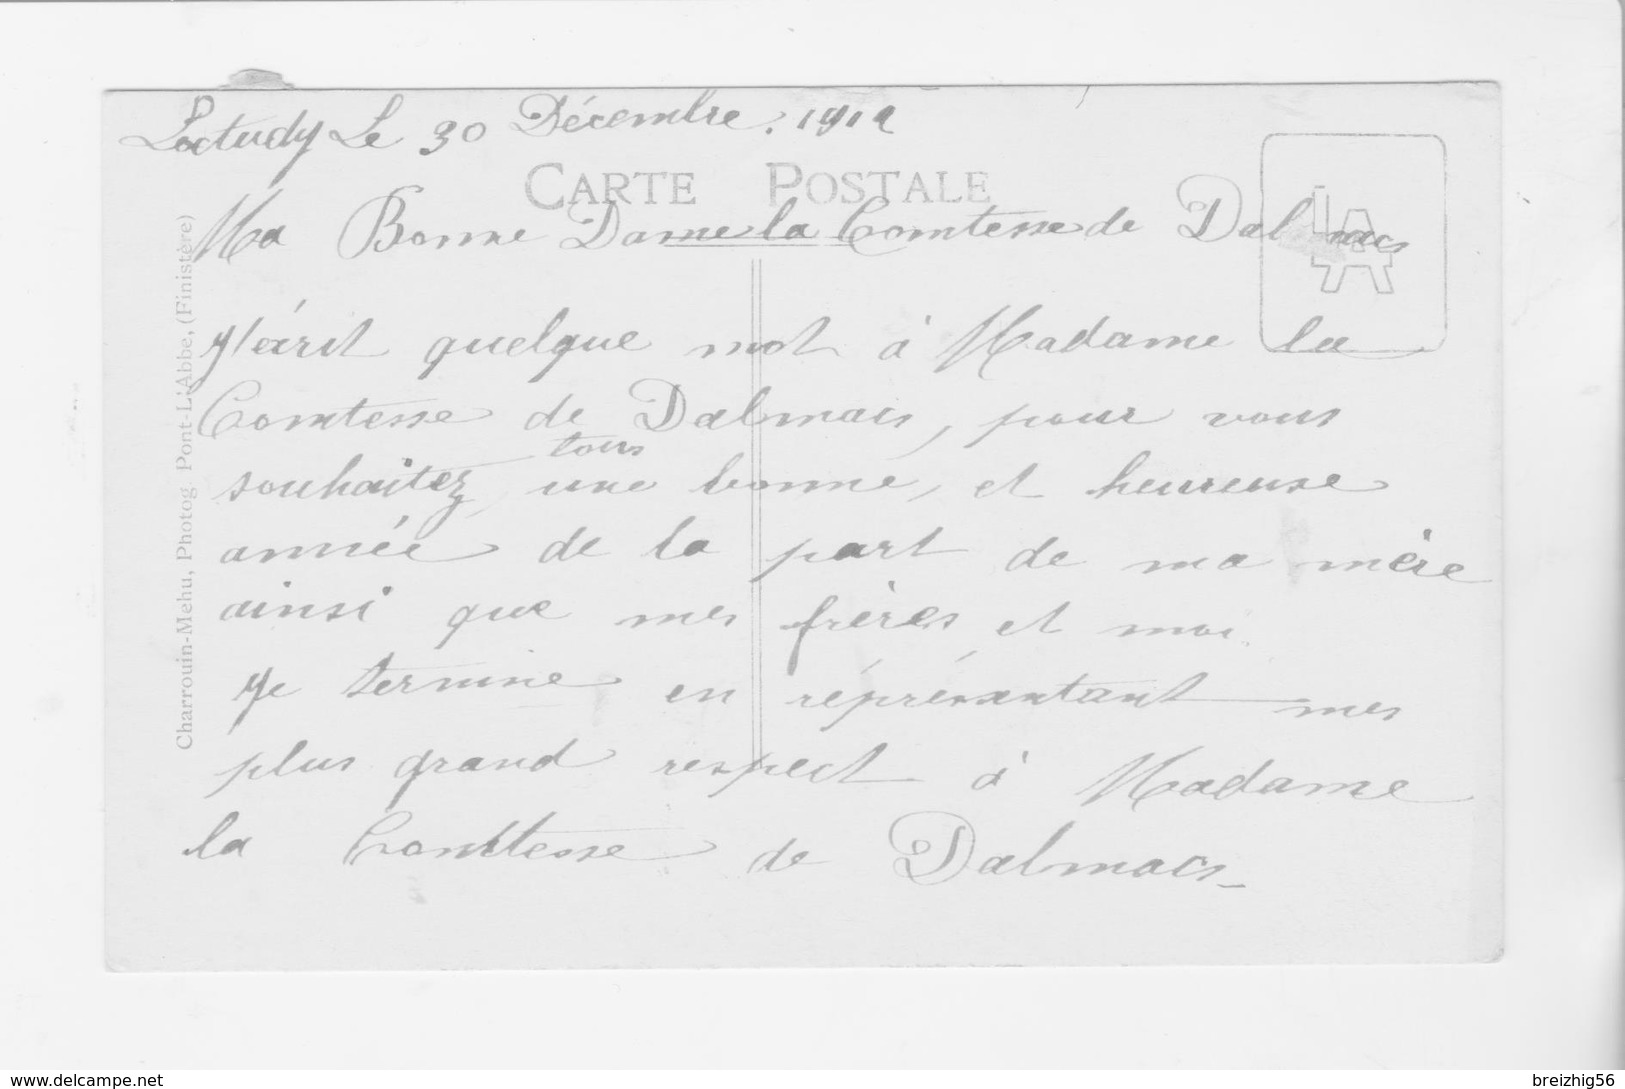 Loctudy Le 30 Décembre. 1912
CARTE POSTALE
Ma Bonne Dame la Comtesse de Dalmas
J'écrit quelque mot à Madame la
Comtesse de Dalmacs, pour vous
tous
souhaitez une bonne, et heureuse
année de la part de ma mère
ainsi que mes frères et moi.
Je termine en réprésentant mes
plus grand respect à Madame
la Comttesse de Dalmacs
Charrouin-Mehu, Photog Pont-L'Abbe, (Finistère)
breizhig56